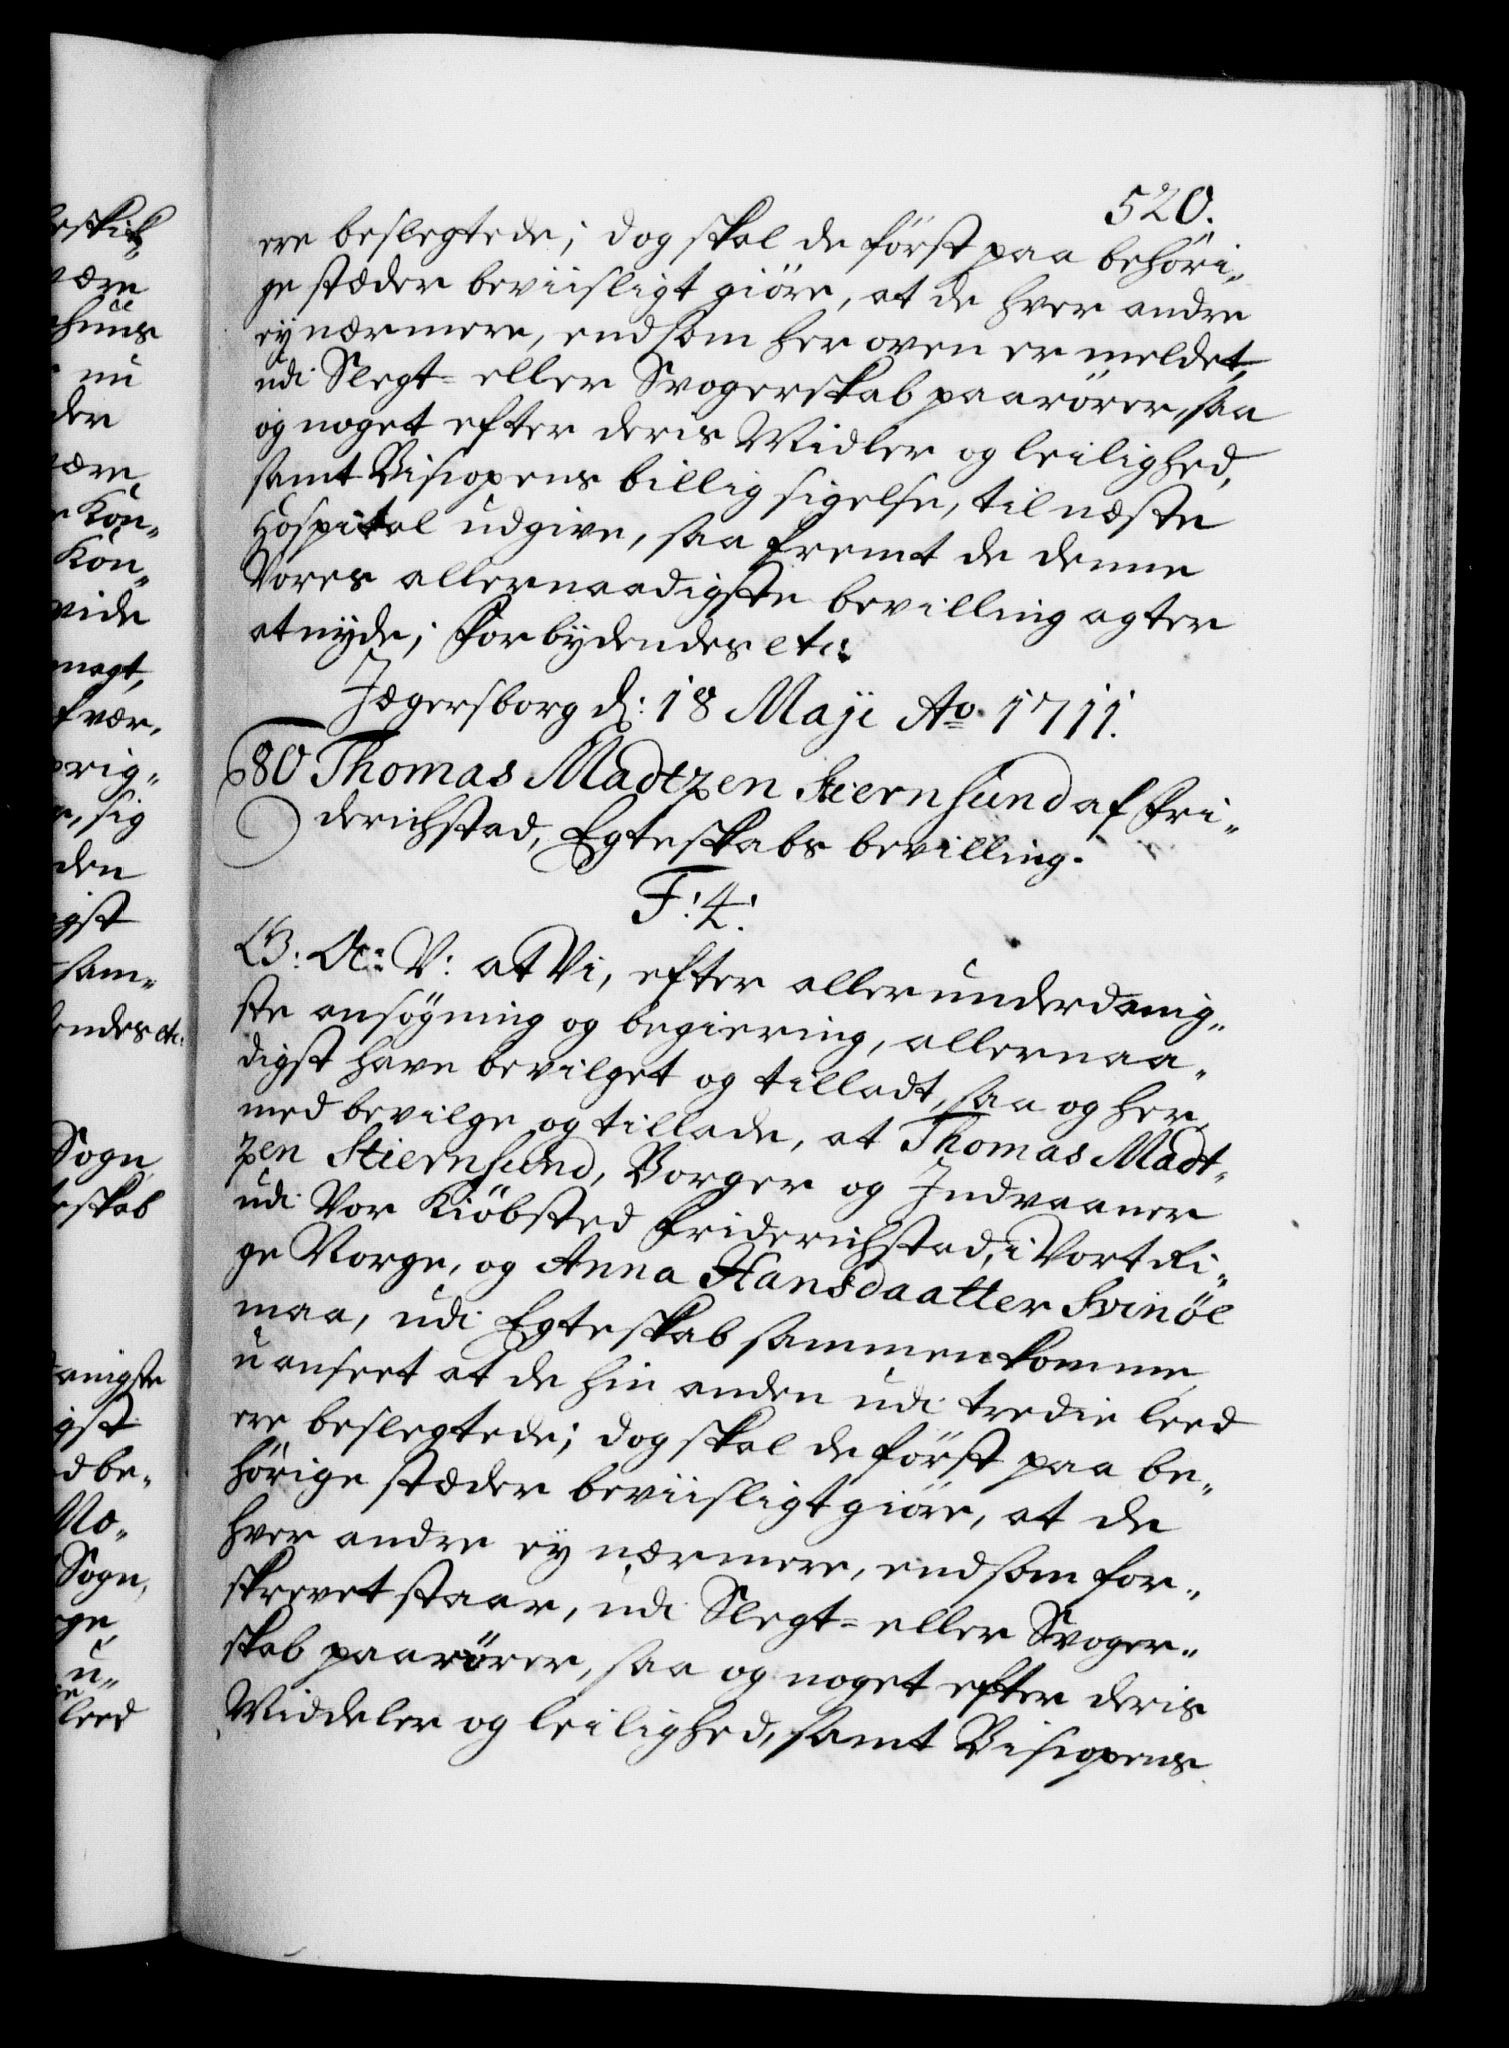 520.
ere beslegtede; dog skal de först paa behöri„
ge stæder beviisligt giöre, at de hver andre
ey nærmere, end som her oven er meldet,
udi Slegt= eller Svogerskab paarörer, saa
og noget efter deris Midler og leilighed,
samt Biscopens billig sigelse, til næste
Hospital udgive, saa fremt de denne
Vores allernaadigste bevilling agter
at nyde; Forbydendes etc:
Jægersborg d: 18 Maji Ao 1711.
80 Thomas Madtzen Stiernsund af Fri„
derichstad, Egteskabs bevilling.
F: 4:
G: A: V: at Vi, efter allerunderdanig„
ste ansögning og begiering, allernaa„
digst have bevilget og tilladt, saa og her„
med bevilge og tillade, at Thomas Madt„
zen Stiernsund, Borger og Indvaaner
udi Vor Kiöbsted Friderichstad, i Vort Ri„
ge Norge, og Anna Hansdaatter Svinöe
maa, udi Egteskab sammenkomme,
uanseet at de hin anden udi tredie leed
ere beslegtede; dog skal de först paa be„
hörige stæder beviisligt giöre, at de
hver andre ey nærmere, end som for„
skrevet staar, udi Slegt= eller Svoger„
skab paarörer, saa og noget efter deris
Middeler og leilighed, samt Biscopens